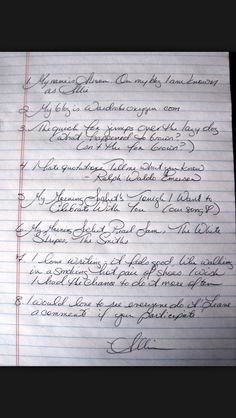 1. My name is Alison. On my blog I am known
as Allie
2. My blog is Wardrobeoxygen.com
3. The quick fox jumps over the lazy dog
(What happened to brown?
Isn't the fox brown?)
4. I hate quotations. Tell me what you know
- Ralph Waldo Emerson
5. My Morning Jacket's Tonight I Want to
Celebrate With You (our song)
6. My Morning Jacket, Pearl Jam, The White
Stripes, The Smiths
7. I love writing, it feels good like walking
in a smoking hot pair of shoes. I wish
I had the chance to do it more often
8. I would love to see everyone do it! Leave
a comment if you participate
- Allie